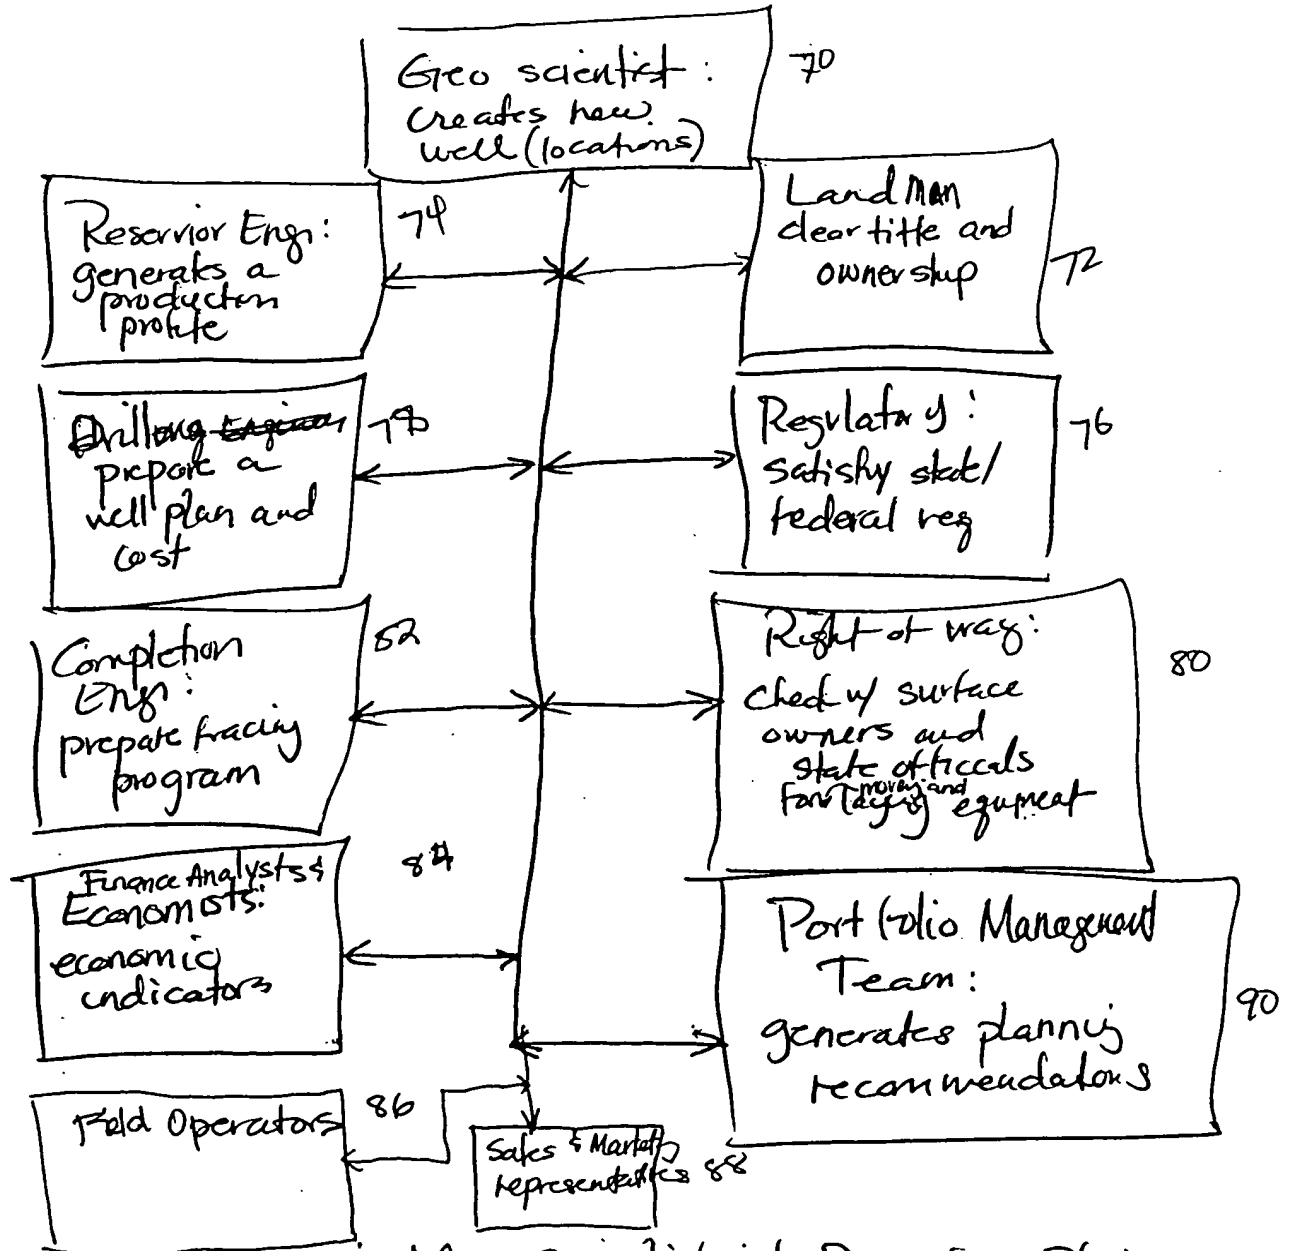 Geo scientist :
creates new
well (locations)
70
Reservior Eng:
generates a
production
profile
74
Land Man
clear title and
ownership
72
Drilling Engineer
prepare a
well plan and
cost
78
Regulatory :
satisfy state/
federal req
76
Completion
Eng:
prepate fracing
program
82
Right of way:
check w/ surface
owners and
state officals
moving and
equpment
80
Finance Analysts &
Economists:
economic
indicators
84
Portfolio Management
Team:
generates planning
recommendations
90
Field Operators
86
Sales & Marketing
representatives 88